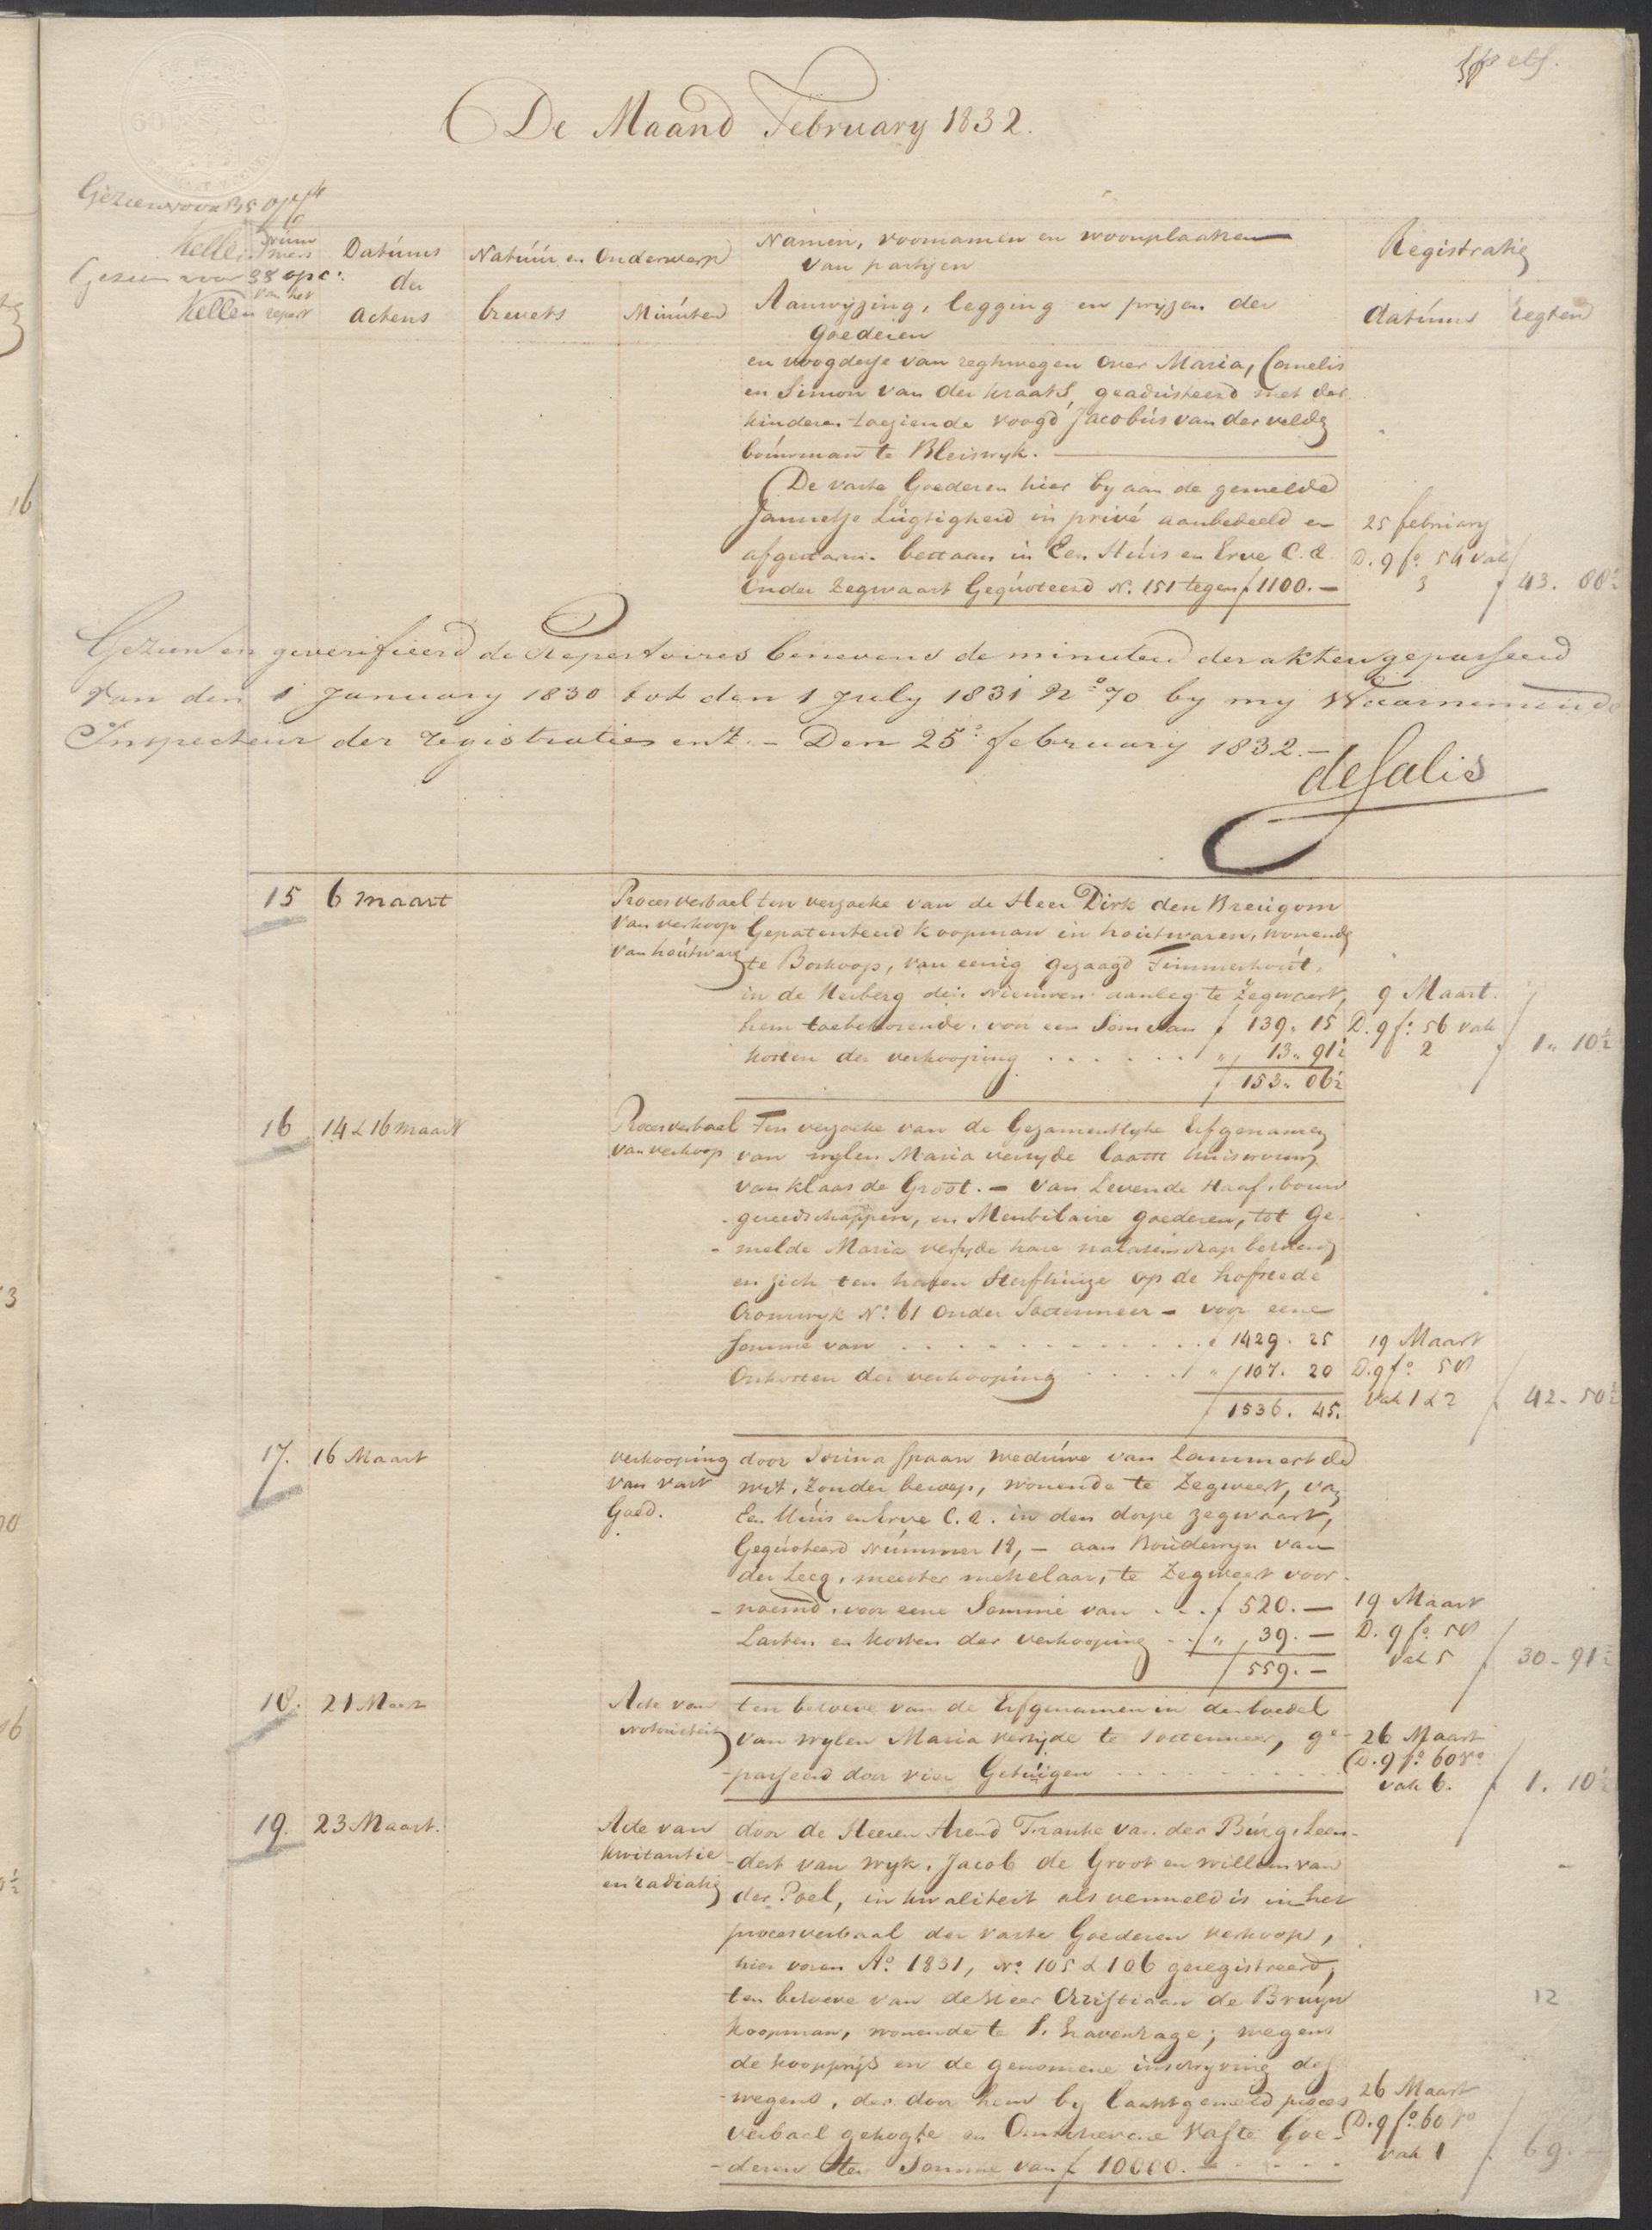 elf.
De Maand February 1832.
Gezien voor
Kelle
Gezien voor 38 op c:
Kelle
Num
mers
van het
repert
Datúms
der
Actens
Natúúr en Onderwerp
brevets
Minúten
Namen, voornamen en woonplaatsen
van partyen
Aanwyzing, legging en pryzen der
Goederen
Registratie
datúms
regten
en voogdesse van regtswegen over Maria, Cornelis
en Simon van der Kraats, geadsisteerd met der
kinderen toeziende voogd Jacobús van der velde
boúwman te Bleiswyk.
De vaste Goederen hier by aan de gemelde
Jannetje Lúgtigheid in privé aanbedeeld en
afgestaan. bestaan in Een Húis en Erve C.A.
Onder Zegwaart Gequoteerd N. 151 tegen f 1100.—
25 februarij
D. 9 fo. 54 vak
3
f 43. 00½
Gezien en geverifieerd de Repertoires benevens de minuten der akten gepasseerd
van den 1 January 1830 tot den 1 July 1831 No 70 by my Waarnemende
Inspecteur der registratie enz. — Den 25e february 1832.—
de Salis
15
6 maart
Proces verbael
van verkoop
van hoútware
ten verzoeke van de Heer Dirk den Breúgom
Gepatenteerd koopman in hoútwaren, wonende
te Boskoop, van eenig gezaagd Timmerhoút,
in de Herberg den Nieuwen aanleg te Zegwaart,
hem toebehorende. voor een Som van f 139. 15
kosten der verkooping . . . . . . " 13. 91½
f 153. 06½
9 Maart.
D. 9 fo. 56 vak
2
f 1. 10½
16
14 & 16 maart
Proces verbael
van verkoop
Ten verzoeke van de Gezamentlyke Erfgenamen
van wylen Maria verryde laatst húisvrouw
van klaas de Groot. — van Levende Haaf, bouw
gereedschappen, en Meubilaire goederen, tot Ge-
-melde Maria verryde hare nalatenschap behorende
en zich ten haren Sterfhúize op de hofstede
Cromwyk No. 61 onder Soetermeer — voor eene
Somme van . . . . . . . . . . . . f 1429. 25
Onkosten der verkooping . . . . . " 107. 20
f 1536. 45.
19 Maart
D. 9 fo. 58
Vak 1 & 2
f 42. 50½
17.
16 Maart
verkooping
van vast
Goed.
door Jorina Spaan weduwe van Lammert de
wit, zonder beroep, wonende te Zegwaert, van
Een Húis en Erve C.A. in den dorpe zegwaart,
Gequoteerd Númmer 18, — aan Boúdewyn van
der Leeg, meester metselaar, te Zegwaert voor-
-noemd. voor eene Somme van . . . f 520.—
Lasten en kosten der verkooping . . " 39.—
f 559.—
19 Maart
D. 9 fo. 58
Vak 5
f 30. 91½
18.
21 Maart
Acte van
Notorieteit
ten behoeve van de Erfgenamen in den boedel
van wylen Maria verryde te Soetermeer, ge-
-passeerd door vier Getúigen . . . . . . .
26 Maart
D. 9 fo. 60 vo
vak 6.
f 1. 10½
19.
23 Maart.
Acte van
kwitantie
en radiatie
door de Heeren Arend Franke van der Búrg, Leen-
-dert van wyk, Jacob de Groot en willem van
der Poel, in kwaliteit als vermeld is in het
procesverbaal der vaste Goederen verkoop,
hier voren Ao. 1831, No. 105 & 106 geregistreerd,
ten behoeve van de Heer Christiaan de Bruijn
koopman, wonende te S. Gravenhage; wegens
de koopprijs en de genomene inschryving des
-wegens, der door hem by laatstgemeld proces
verbael gekogte en Omschreven Vaste Goe-
-deren Ter Somme van f 10000.—
12
26 Maart
D. 9 fo. 60 vo
vak 1
f 69.—